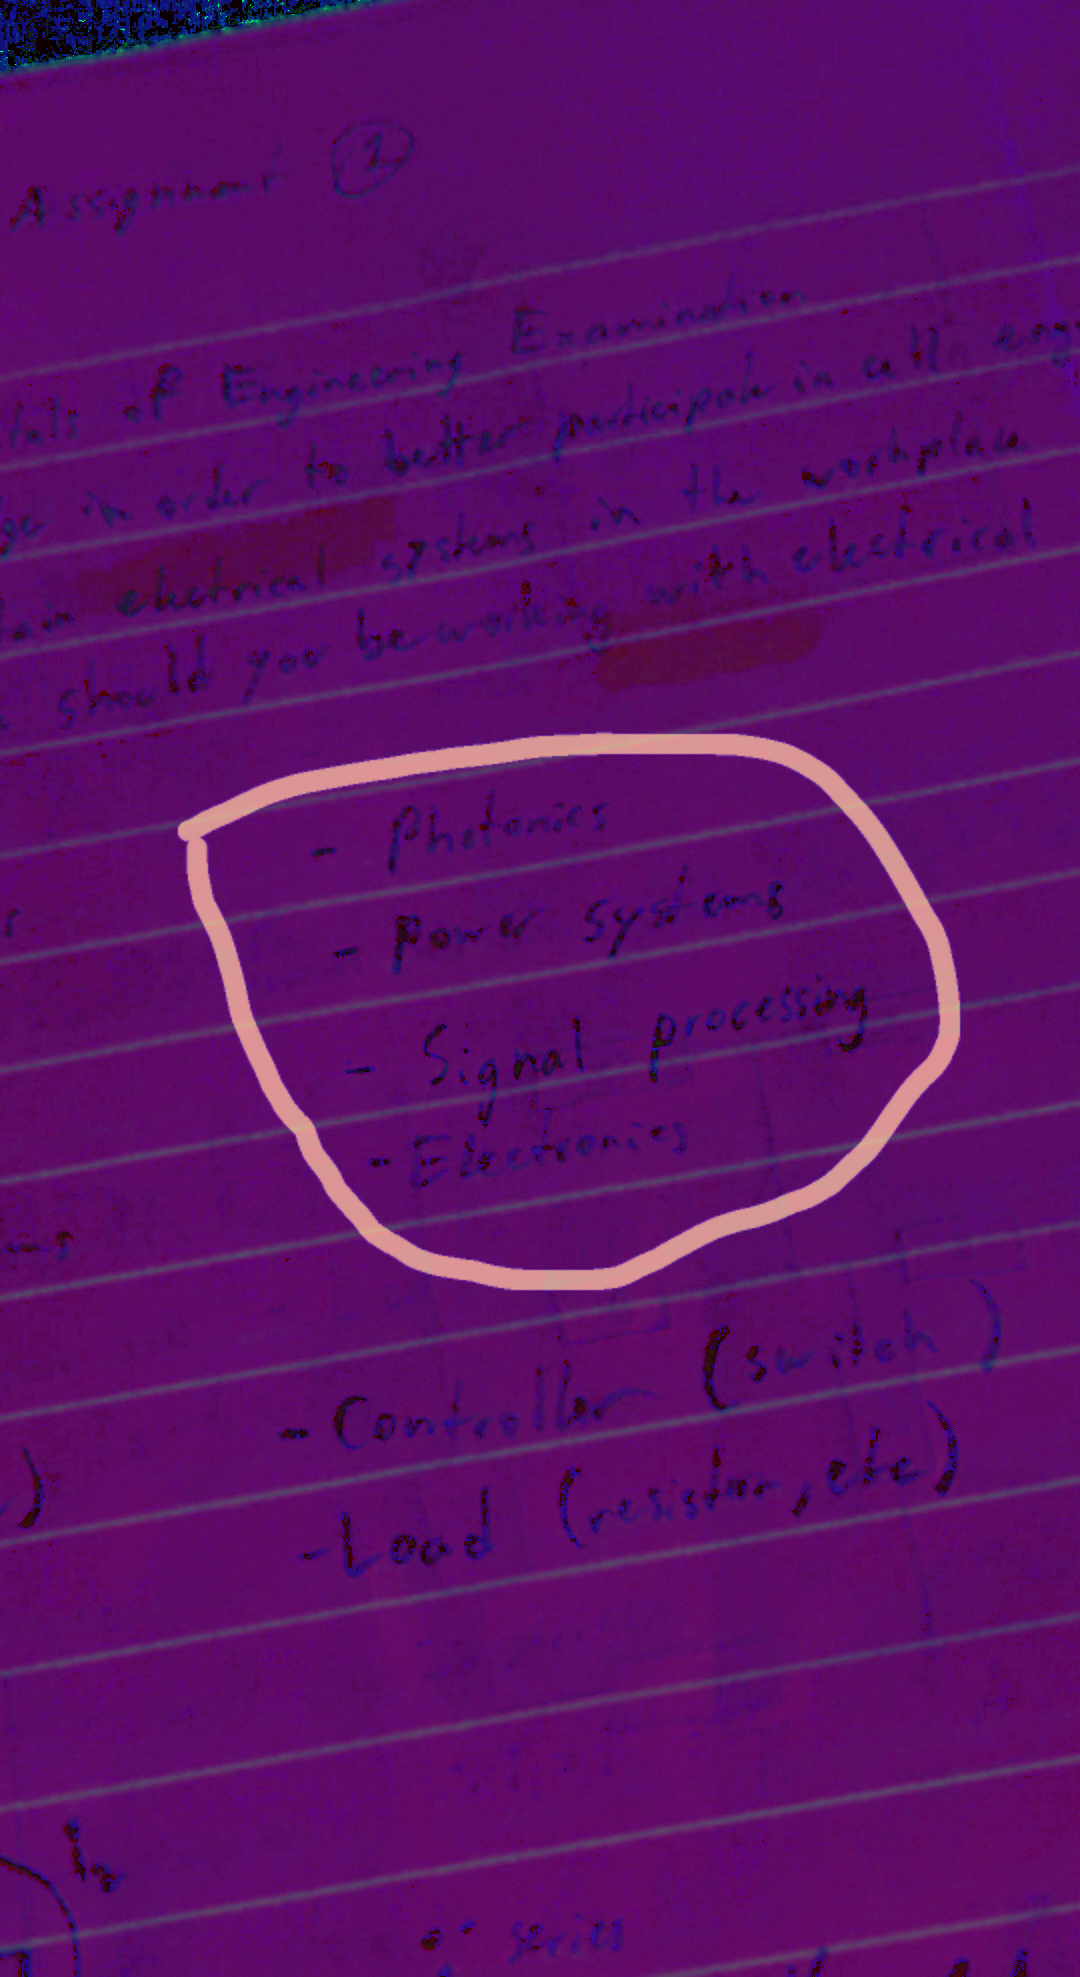 Assignment 2
of Engineering Examination
in order to better participate in all
electrical systems in the workplace
should you be working with electrical
- Photonics
- Power systems
- Signal processing
- Electronics
- Controller (switch)
- Load (resistor, etc)
series